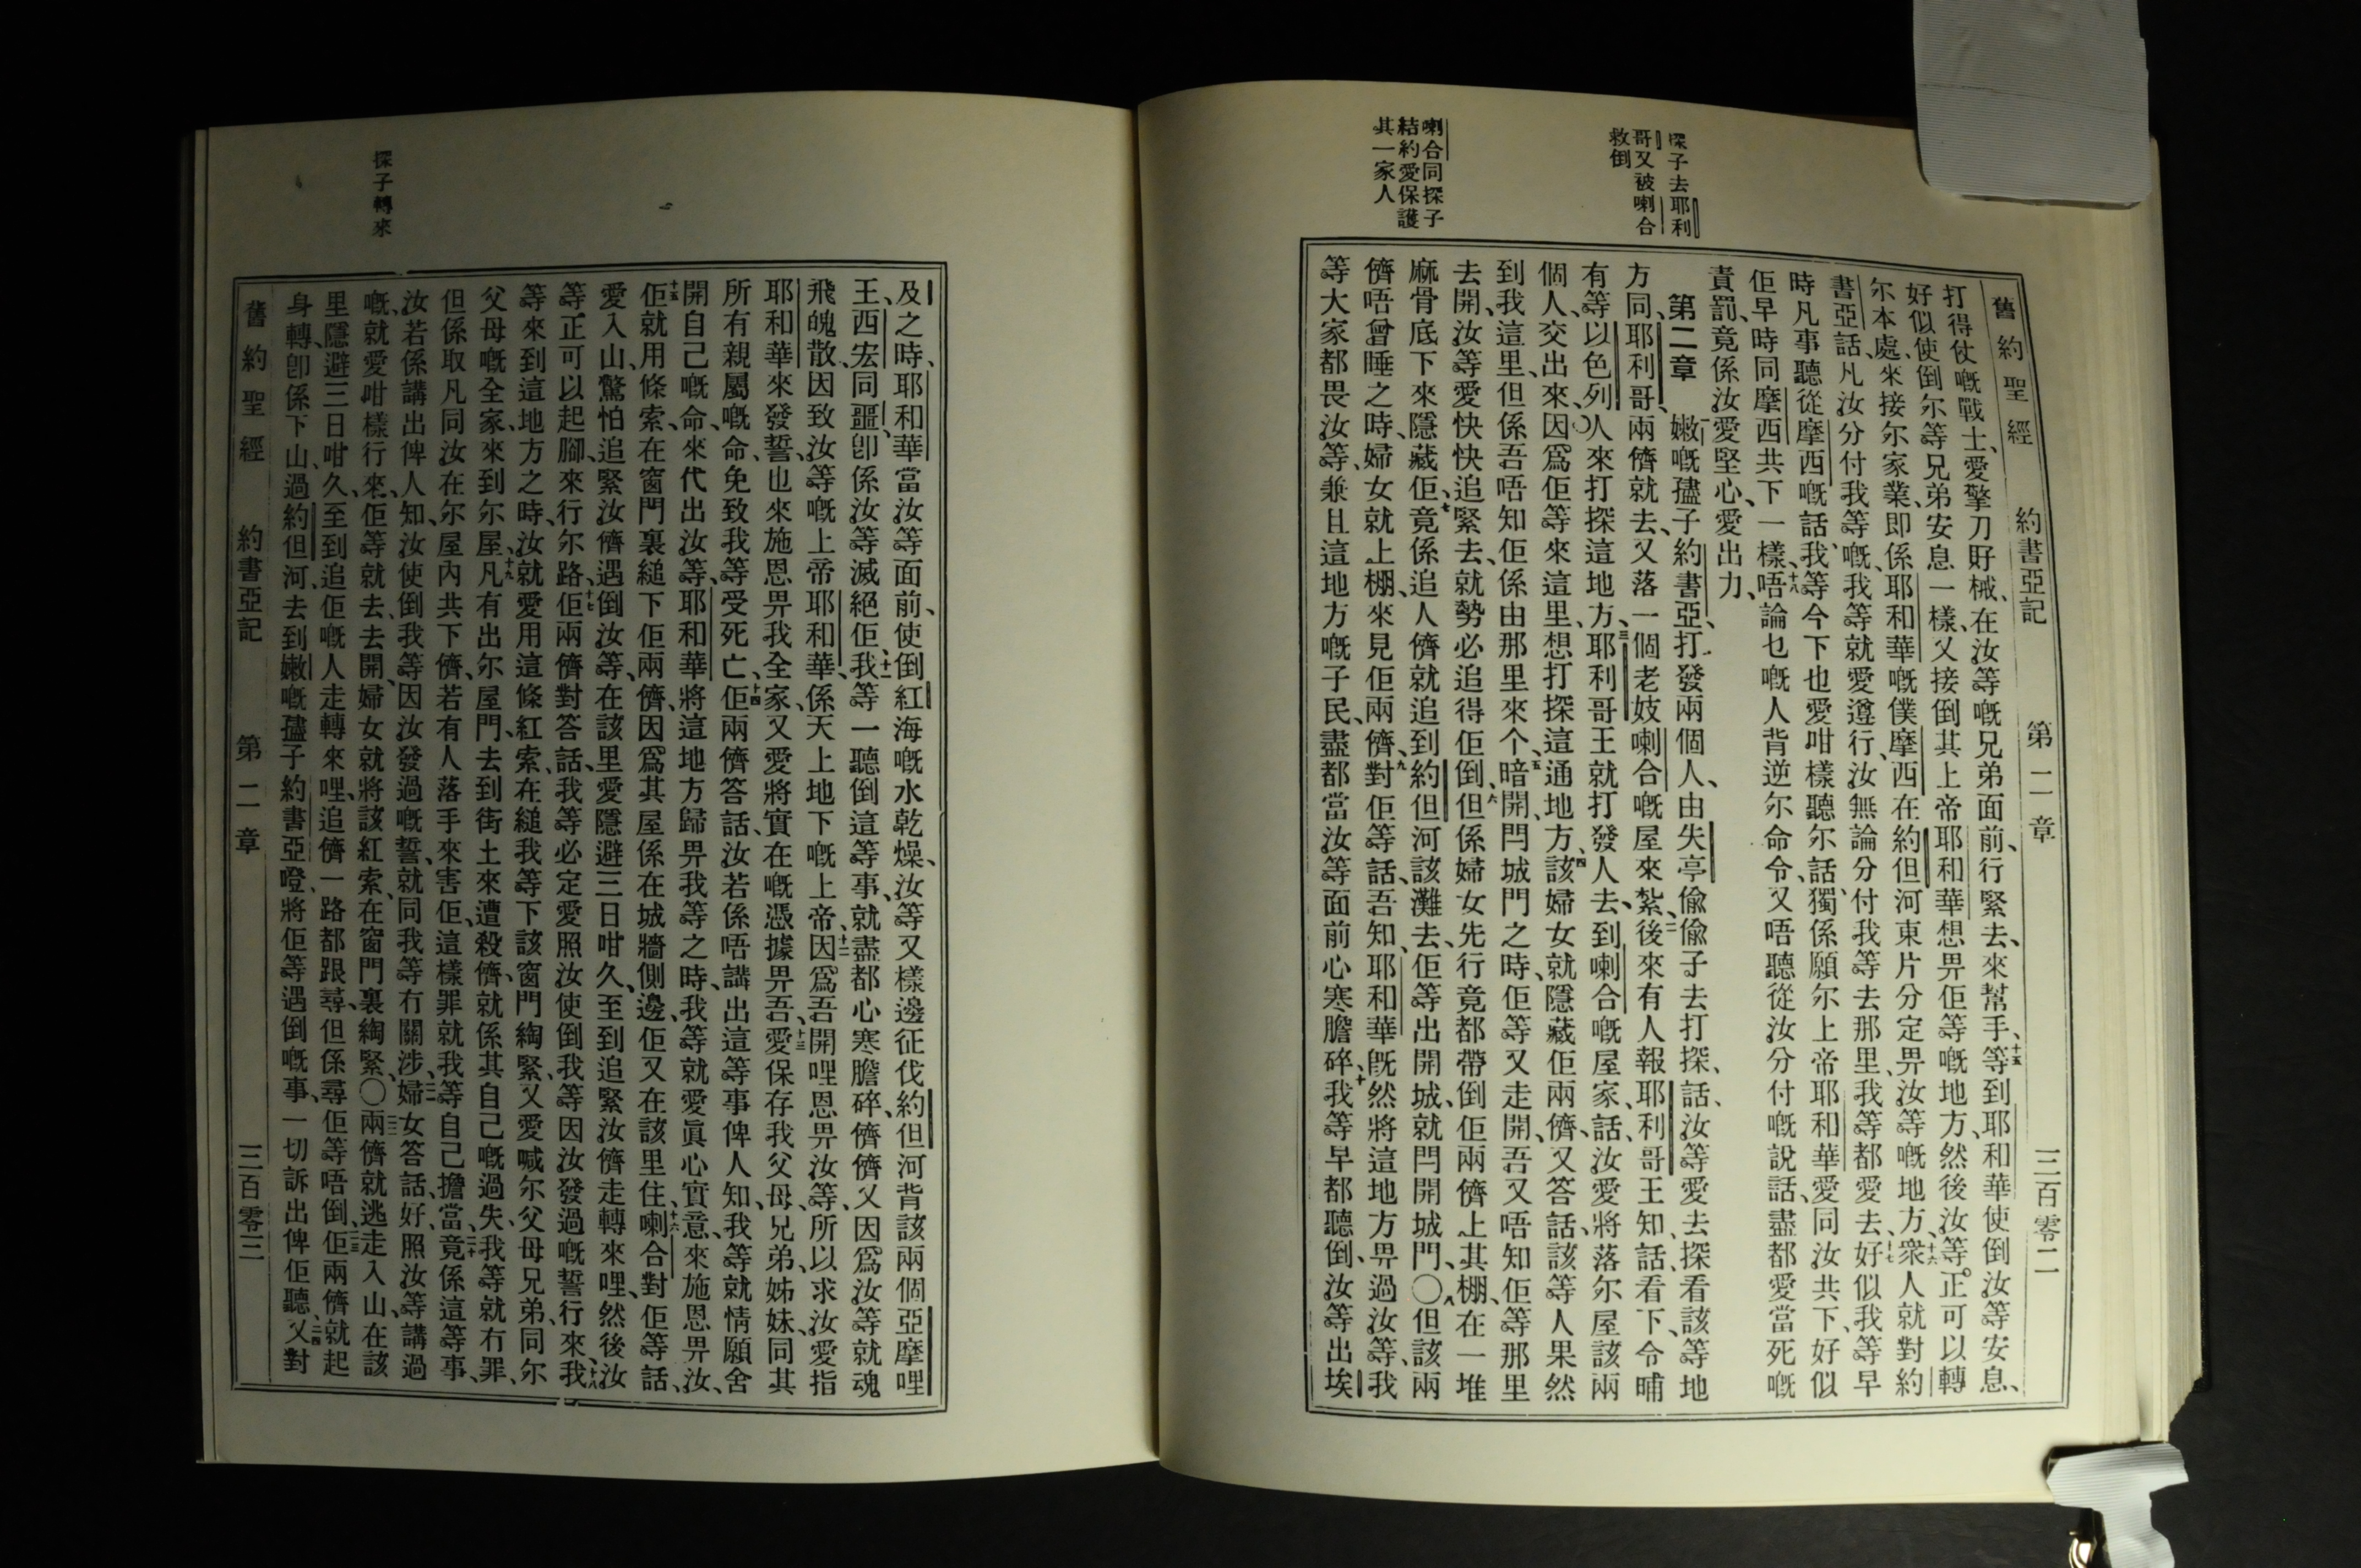 探子去耶利
哥又被喇合
救倒
喇合同探子
結約愛保護
其一家人
舊約聖經 約書亞記 第二章 三百零二
打得仗嘅戰士、愛擎刀𢦓械、在汝等嘅兄弟面前、行緊去、來幫手、十五等到耶和華使倒汝等安息、
好似使倒尔等兄弟安息一樣、又接倒其上帝耶和華想畀佢等嘅地方、然後汝等正可以轉
尔本處、來接尔家業、即係耶和華嘅僕摩西在約但河東片分定畀汝等嘅地方、十六衆人就對約
書亞話、凡汝分付我等嘅、我等就愛遵行、汝無論分付我等去那里、我等都愛去、十七好似我等早
時凡事聽從摩西嘅話、我等今下也愛咁樣聽尔話、獨係願尔上帝耶和華、愛同汝共下、好似
佢早時同摩西共下一樣、十八唔論乜嘅人背逆尔命令、又唔聽從汝分付嘅說話、盡都愛當死嘅
責罰、竟係汝愛堅心、愛出力、
第二章 嫩嘅孻子約書亞、打發兩個人、由失亭偸偸子去打探、話、汝等愛去探看該等地
方、同耶利哥、兩儕就去、又落一個老妓喇合嘅屋來紮、二後來有人報耶利哥王知、話、看下、今晡
有等以色列人來打探這地方、三耶利哥王就打發人去到喇合嘅屋家、話、汝愛將落尔屋該兩
個人、交出來、因爲佢等來這里、想打探這通地方、四該婦女就隱藏佢兩儕、又答話、該等人果然
到我這里、但係吾唔知佢係由那里來个、五暗開、閂城門之時、佢等又走開、吾又唔知佢等那里
去開、汝等愛快快追緊去、就勢必追得佢倒、六但係婦女先行竟都帶倒佢兩儕上其棚、在一堆
麻骨底下來隱藏佢、七竟係追人儕就追到約但河該灘去、佢等出開城、就閂開城門、〇八但該兩
儕唔曾睡之時、婦女就上棚、來見佢兩儕、九對佢等話、吾知、耶和華旣然將這地方畀過汝等、我
等大家都畏汝等、兼且這地方嘅子民、盡都當汝等面前心寒膽碎、十我等早都聽倒、汝等出埃
及之時、耶和華當汝等面前、使倒紅海嘅水乾燥、汝等又樣邊征伐約但河背該兩個亞摩哩
王、西宏同噩、卽係汝等滅絕佢、十一我等一聽倒這等事、就盡都心寒膽碎、儕儕又因爲汝等就魂
飛魄散、因致汝等嘅上帝耶和華、係天上地下嘅上帝、十二因爲吾開哩恩畀汝等、所以求汝愛指
耶和華來發誓、也來施恩畀我全家、又愛將實在嘅憑據畀吾、十三愛保存我父母、兄弟、姊妹、同其
所有親屬嘅命、免致我等受死亡、十四佢兩儕答話、汝若係唔講出這等事俾人知、我等就情願舍
開自己嘅命、來代出汝等、耶和華將這地方歸畀我等之時、我等就愛眞心實意、來施恩畀汝、
十五佢就用條索、在窗門裏縋下佢兩儕、因爲其屋係在城牆側邊、佢又在該里住、十六喇合對佢等話、
愛入山、驚怕追緊汝儕遇倒汝等、在該里愛隱避三日咁久、至到追緊汝儕走轉來哩、然後汝
等正可以起腳、來行尔路、十七佢兩儕對答話、我等必定愛照汝使倒我等因汝發過嘅誓行來、十八我
等來到這地方之時、汝就愛用這條紅索、在縋我等下該窗門綯緊、又愛喊尔父母兄弟、同尔
父母嘅全家、來到尔屋、十九凡有出尔屋門、去到街上來遭殺儕、就係其自己嘅過失、我等就冇罪、
但係取凡同汝在尔屋內共下儕、若有人落手來害佢、這樣罪就我等自己擔當、二十竟係這等事、
汝若係講出俾人知、汝使倒我等因汝發過嘅誓、就同我等冇關涉、二一婦女答話、好、照汝等講過
嘅、就愛咁樣行來、佢等就去、去開、婦女就將該紅索、在窗門裏綯緊、〇二二兩儕就逃走入山、在該
里隱避三日咁久、至到追佢嘅人走轉來哩、追儕一路都跟尋、但係尋佢等唔倒、二三佢兩儕就起
身轉、卽係下山、過約但河、去到嫩嘅孻子約書亞嶝、將佢等遇倒嘅事、一切訴出俾佢聽、二四又對
舊約聖經 約書亞記 第二章 三百零三
探子轉來